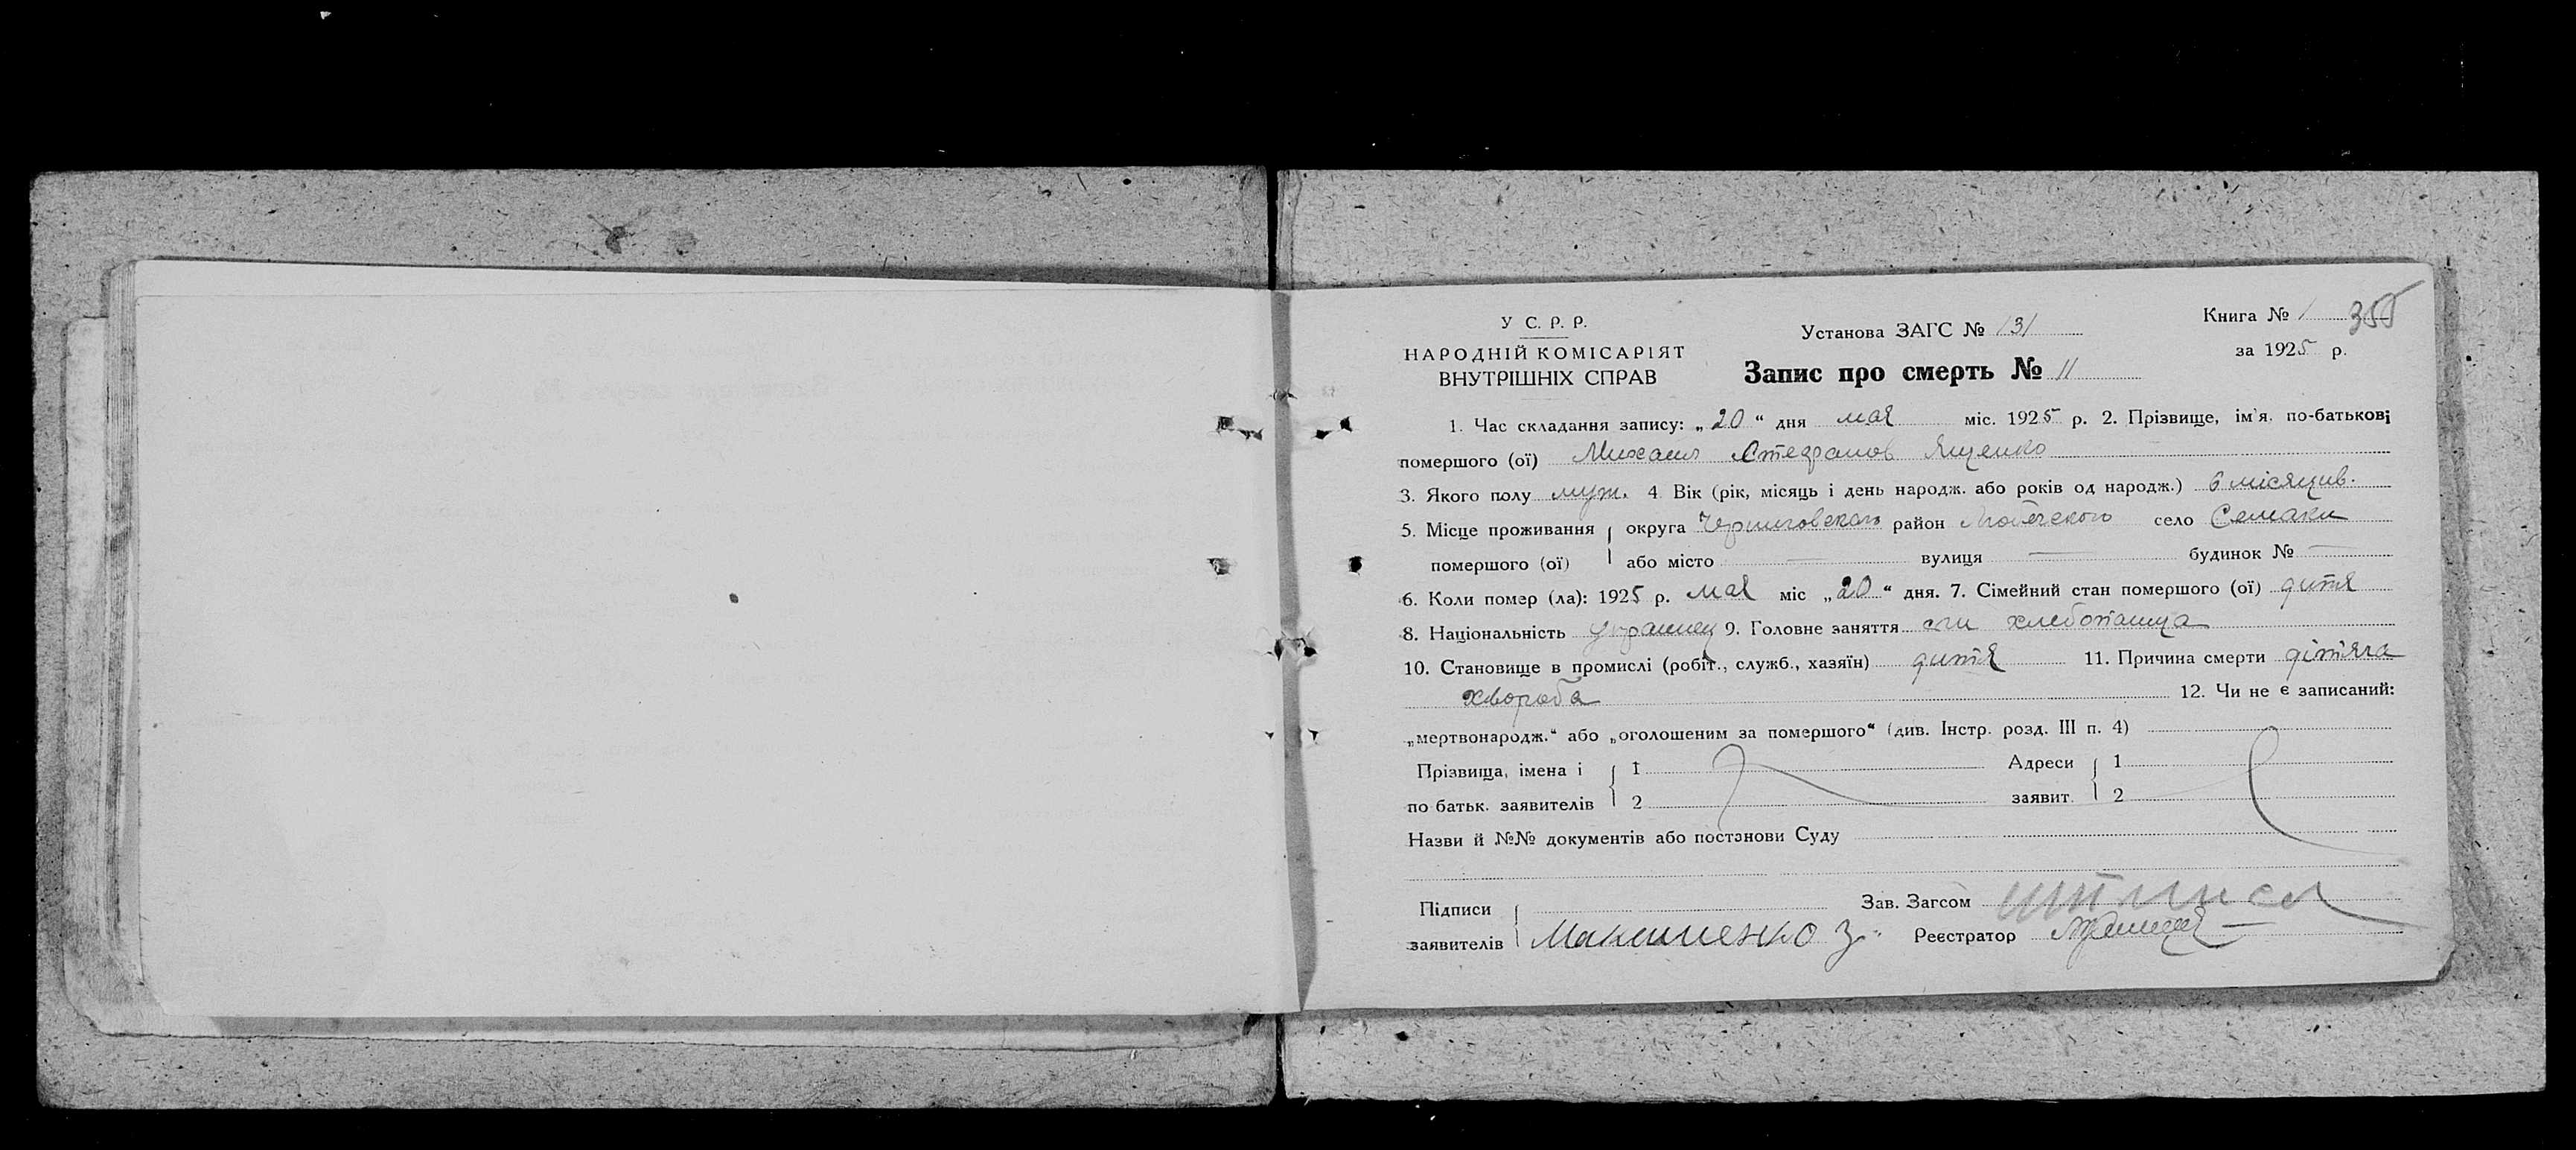 У С. Р. Р.
НАРОДНІЙ КОМІСАРІЯТ
ВНУТРІШНІХ СПРАВ
Установа ЗАГС № 131
Запис про смерть № 11
Книга № 1 355
за 1925 р.
1. Час складання запису: „20“ дня мая міс. 1925 р. 2. Прізвище, ім'я, по-батькові
помершого (ої) Михаил Стефанов Яценко
3. Якого полу муж. 4 Вік (рік, місяць і день народж. або років од народж.) 6 місяцив.
5. Місце проживання округа Черниговского район Любечского село Семаки
помершого (ої) або місто — вулиця — будинок № —
6. Коли помер (ла): 1925 р. мая міс „20“ дня. 7. Сімейний стан помершого (ої) дитя
8. Національність украинец 9. Головне заняття хлебопашца
10. Становище в промислі (робіт., служб., хазяїн) дитя 11. Причина смерти дітяча
хвороба 12. Чи не є записаний:
„мертвонародж.“ або „оголошеним за помершого“ (див. Інстр. розд. III п. 4)
Прізвища, імена і 1 Адреси 1
по батьк. заявителів 2 заявит. 2
Назви й №№ документів або постанови Суду
Підписи Зав. Загсом
заявителів Макшиенко З. Реєстратор